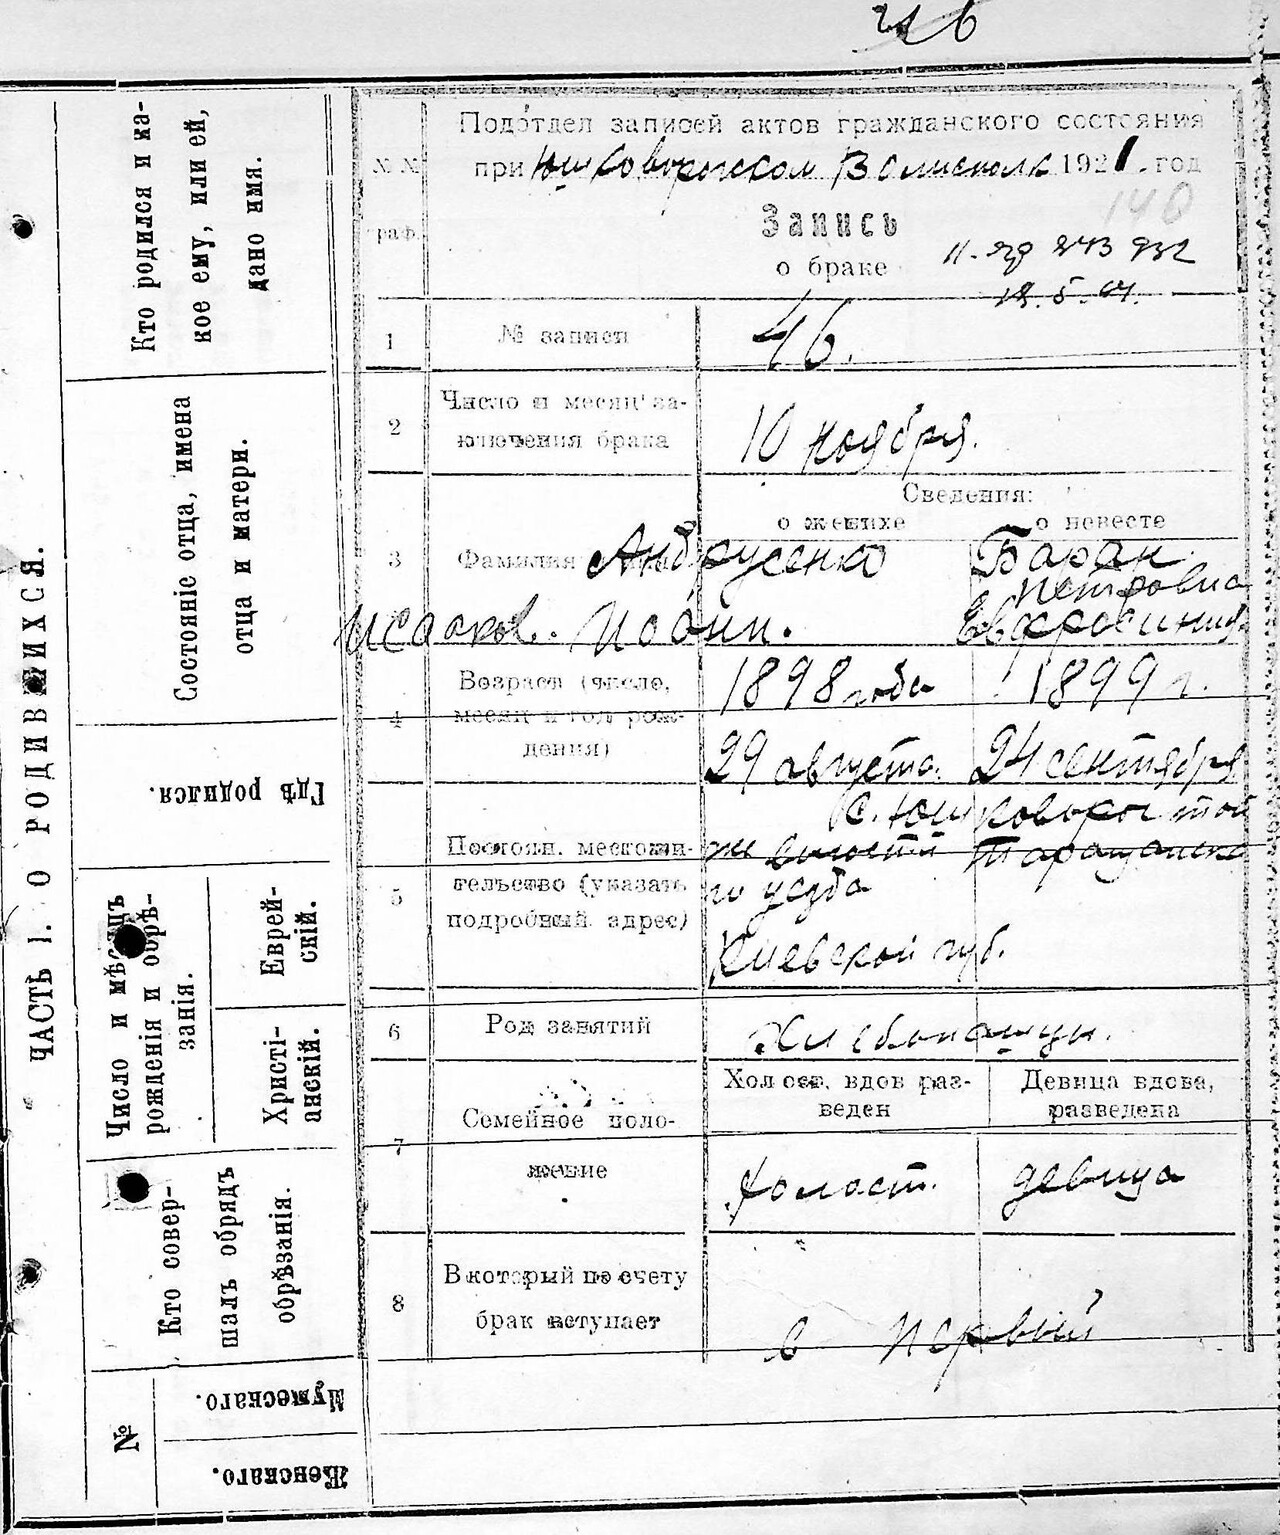 46
ЧАСТЬ I. О РОДИВШИХСЯ.
Кто родился и ка-
кое ему, или ей,
дано имя.
Состояніе отца, имена
отца и матери.
Гдѣ родился.
Число и мѣсяцъ
рожденія и обрѣ-
занія.
Еврей-
скій.
Христі-
анскій.
Кто совер-
шалъ обрядъ
обрѣзанія.
№
Мужескаго.
Женскаго.
№№
граф.
Подотдел записей актов гражданского состояния
при Юшковорожском Волисполк 1921. год
140
Запись
о браке
18.5.64.
1
№ записи
46.
2
Число и месяц за-
ключения брака
10 ноября.
Сведения:
о женихе
о невесте
3
Фамилия
Андрусенко
Баран
Петровна
Исааков. Иоанн.
Евфросиния
4
Возраст (число,
месяц и год рож-
дения)
1898 года
1899 г.
29 августа.
24 сентября
5
Постоян. местожи-
тельство (указать
подробный адрес)
С. Юшковорог той
же волости Таращанско
го уезда
Киевской губ.
6
Род занятий
Хлебопашцы.
7
Семейное поло-
жение
Холост, вдов раз-
веден
Девица вдова,
разведена
Холост.
девица
8
В который по счету
брак вступает
в первый